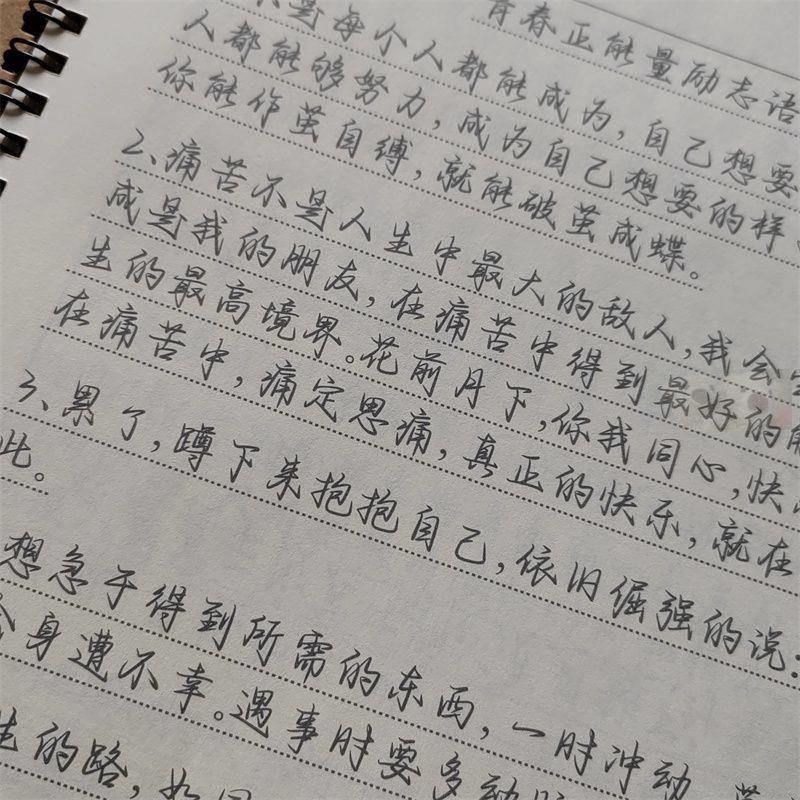 青春正能量励志语
不是每个人都能成为,自己想要
人都能够努力,成为自己想要的样
你能作茧自缚,就能破茧成蝶。
2、痛苦不是人生中最大的敌人,我会
成是我的朋友,在痛苦中得到最好的
生的最高境界。花前月下,你我同心,快
在痛苦中,痛定思痛,真正的快乐,就在
此。
3、累了,蹲下来抱抱自己,依旧倔强的说:
想急于得到所需的东西,一时冲动
身遭不幸。遇事时要多动
生的路,如果